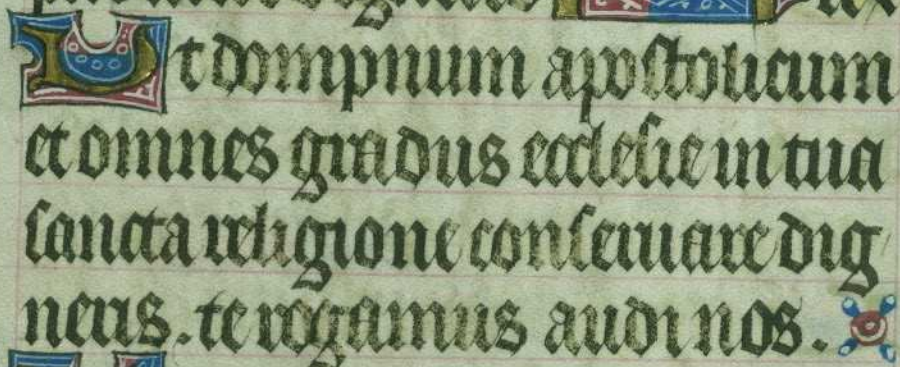 Ut dompnum apostolicum
et omnes gradus ecclesie in tua
sancta religione conseruare dig
neris . te rogamus audi nos .